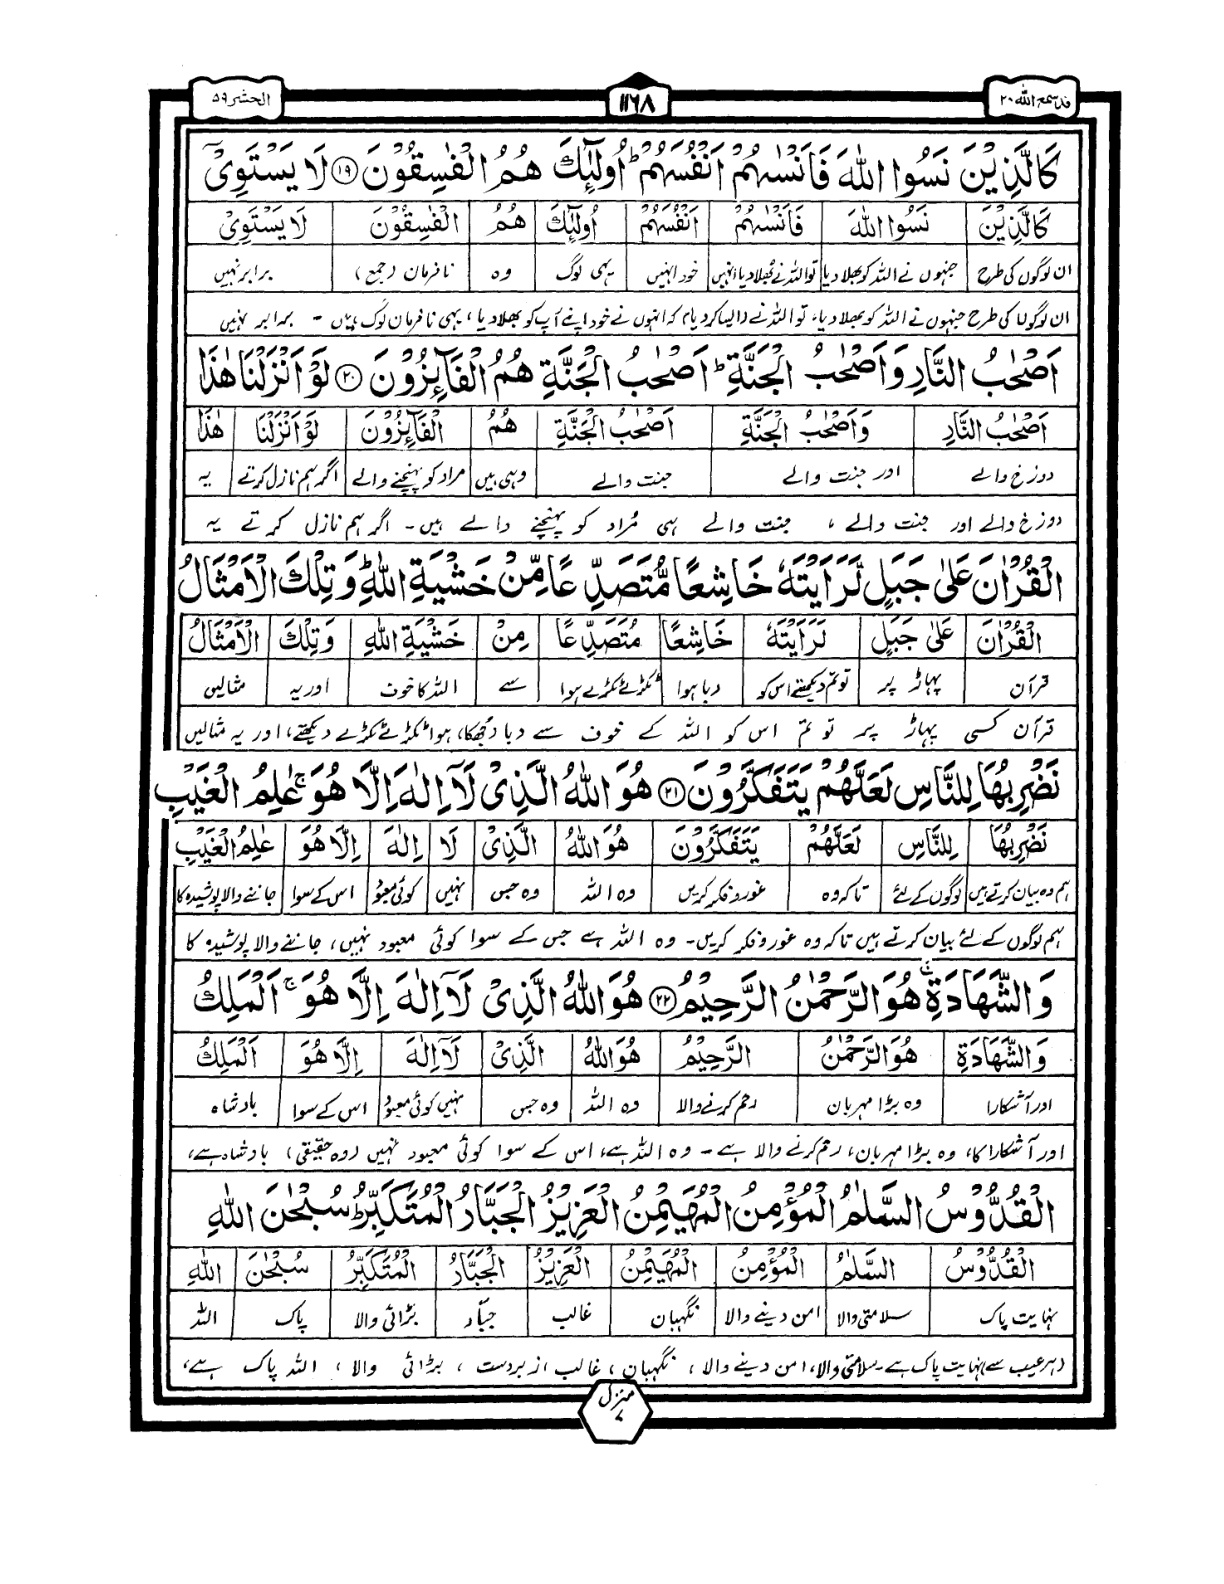 قد سمع اللّٰه ۲۰
۱۱۶۸
الحشر ۵۹
كَالَّذِيْنَ نَسُوا اللّٰهَ فَاَنْسٰىهُمْ اَنْفُسَهُمْ ؕ اُولٰٓئِكَ هُمُ الْفٰسِقُوْنَ ﴿۱۹﴾ لَا يَسْتَوِيْٓ
كَالَّذِيْنَ نَسُوا اللّٰهَ فَاَنْسٰىهُمْ اَنْفُسَهُمْ اُولٰٓئِكَ هُمُ الْفٰسِقُوْنَ لَا يَسْتَوِيْٓ
ان لوگوں کی طرح جنہوں نے اللہ کو بھلا دیا تو اللہ نے بھلا دیا انہیں خود انہیں یہی لوگ وہ نافرمان (جمع) برابر نہیں
ان لوگوں کی طرح جنہوں نے اللہ کو بھلا دیا، تو اللہ نے (ایسا کر دیا) کہ انہوں نے خود اپنے آپ کو بھلا دیا، یہی نافرمان لوگ ہیں ۔ برابر نہیں
اَصْحٰبُ النَّارِ وَاَصْحٰبُ الْجَنَّةِ ؕ اَصْحٰبُ الْجَنَّةِ هُمُ الْفَآئِزُوْنَ ﴿۲۰﴾ لَوْ اَنْزَلْنَا هٰذَا
اَصْحٰبُ النَّارِ وَاَصْحٰبُ الْجَنَّةِ اَصْحٰبُ الْجَنَّةِ هُمُ الْفَآئِزُوْنَ لَوْ اَنْزَلْنَا هٰذَا
دوزخ والے اور جنت والے جنت والے وہی ہیں مراد کو پہنچنے والے اگر ہم نازل کرتے یہ
دوزخ والے اور جنت والے ، جنت والے ہی مُراد کو پہنچنے والے ہیں ۔ اگر ہم نازل کرتے یہ
الْقُرْاٰنَ عَلٰى جَبَلٍ لَّرَاَيْتَهٗ خَاشِعًا مُّتَصَدِّعًا مِّنْ خَشْيَةِ اللّٰهِ ؕ وَتِلْكَ الْاَمْثَالُ
الْقُرْاٰنَ عَلٰى جَبَلٍ لَّرَاَيْتَهٗ خَاشِعًا مُتَصَدِّعًا مِنْ خَشْيَةِ اللّٰهِ وَتِلْكَ الْاَمْثَالُ
قرآن پہاڑ پر تو تم دیکھتے اس کو دبا ہوا ٹکڑے ٹکڑے ہوا سے اللہ کا خوف اور یہ مثالیں
قرآن کسی پہاڑ پر تو تم اس کو اللہ کے خوف سے دبا (جھکا) ہوا ٹکڑے ٹکڑے دیکھتے، اور یہ مثالیں
نَضْرِبُهَا لِلنَّاسِ لَعَلَّهُمْ يَتَفَكَّرُوْنَ ﴿۲۱﴾ هُوَ اللّٰهُ الَّذِيْ لَآ اِلٰهَ اِلَّا هُوَ ۚ عٰلِمُ الْغَيْبِ
نَضْرِبُهَا لِلنَّاسِ لَعَلَّهُمْ يَتَفَكَّرُوْنَ هُوَ اللّٰهُ الَّذِيْ لَا اِلٰهَ اِلَّا هُوَ عٰلِمُ الْغَيْبِ
ہم وہ بیان کرتے ہیں لوگوں کے لئے تاکہ وہ غور و فکر کریں وہ اللہ وہ جس نہیں کوئی معبود اس کے سوا جاننے والا پوشیدہ کا
ہم لوگوں کے لئے بیان کرتے ہیں تاکہ وہ غور و فکر کریں۔ وہ اللہ ہے جس کے سوا کوئی معبود نہیں، جاننے والا پوشیدہ کا
وَالشَّهَادَةِ ۚ هُوَ الرَّحْمٰنُ الرَّحِيْمُ ﴿۲۲﴾ هُوَ اللّٰهُ الَّذِيْ لَآ اِلٰهَ اِلَّا هُوَ ۚ اَلْمَلِكُ
وَالشَّهَادَةِ هُوَ الرَّحْمٰنُ الرَّحِيْمُ هُوَ اللّٰهُ الَّذِيْ لَآ اِلٰهَ اِلَّا هُوَ اَلْمَلِكُ
اور آشکارا وہ بڑا مہربان رحم کرنے والا وہ اللہ وہ جس نہیں کوئی معبود اس کے سوا بادشاہ
اور آشکارا کا، وہ بڑا مہربان، رحم کرنے والا ہے ۔ وہ اللہ ہے، اس کے سوا کوئی معبود نہیں (وہ حقیقی) بادشاہ ہے،
الْقُدُّوْسُ السَّلٰمُ الْمُؤْمِنُ الْمُهَيْمِنُ الْعَزِيْزُ الْجَبَّارُ الْمُتَكَبِّرُ ؕ سُبْحٰنَ اللّٰهِ
الْقُدُّوْسُ السَّلٰمُ الْمُؤْمِنُ الْمُهَيْمِنُ الْعَزِيْزُ الْجَبَّارُ الْمُتَكَبِّرُ سُبْحٰنَ اللّٰهِ
نہایت پاک سلامتی والا امن دینے والا نگہبان غالب جبّار بڑائی والا پاک اللہ
(ہر عیب سے) نہایت پاک ہے۔ سلامتی والا، امن دینے والا ، نگہبان ، غالب ، زبردست ، بڑائی والا ، اللہ پاک ہے،
منزل ۷